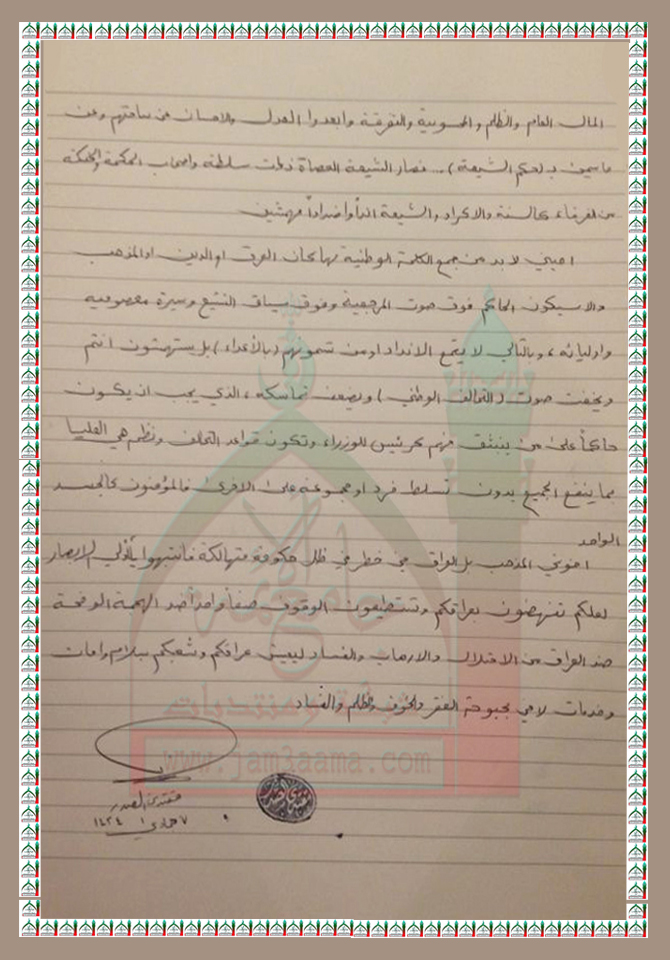 المال العام والظلم والمحسوبية والتفرقة وابعدوا العدل والاحسان عن ساحتهم وعن
ما سمي بـ (حكم الشيعة)... فصار الشيعة العصاة ذوات سلطة واصحاب الحكمة والحنكة
من الفرقاء كالسنة والاكراد والشيعة انداداً واضداداً مهمشين
احبتي لا بد من جمع الكلمة الوطنية مهما كان العرق او الدين او المذهب
والا سيكون الحاكم فوق صوت المرجعية وفوق سياق التشيع وسيرة معصوميه
واوليائه، وبالتالي لا يقمع الانداد او من تسموهم (بالأعداء) بل ستهمشون انتم
ويخفت صوت (التحالف الوطني) ويضعف تماسكه، الذي يجب ان يكون
حاكماً على من ينبثق منهم كرئيس للوزراء وتكون قواعد التحالف ونظمه هي العليا
بما ينفع الجميع بدون تسلط فرد او مجموعة على الاخرى فالمؤمنون كالجسد
الواحد
اخوتي المذهب بل العراق في خطر في ظل حكومة متهالكة فانتبهوا يا أولي الابصار
لعلكم تنهضون بعراقكم وتستطيعون الوقوف صفاً واحداً ضد الهجمة الوقحة
ضد العراق من الاحتلال والارهاب والفساد ليعيش عراقكم وشعبكم بسلام وامان
وخدمات لا في بحبوحة الفقر والخوف والظلم والفساد
مقتدى الصدر
٧ جمادي ١ ١٤٣٤
جامع الإمام
شبكة ومنتديات
www.jam3aama.com